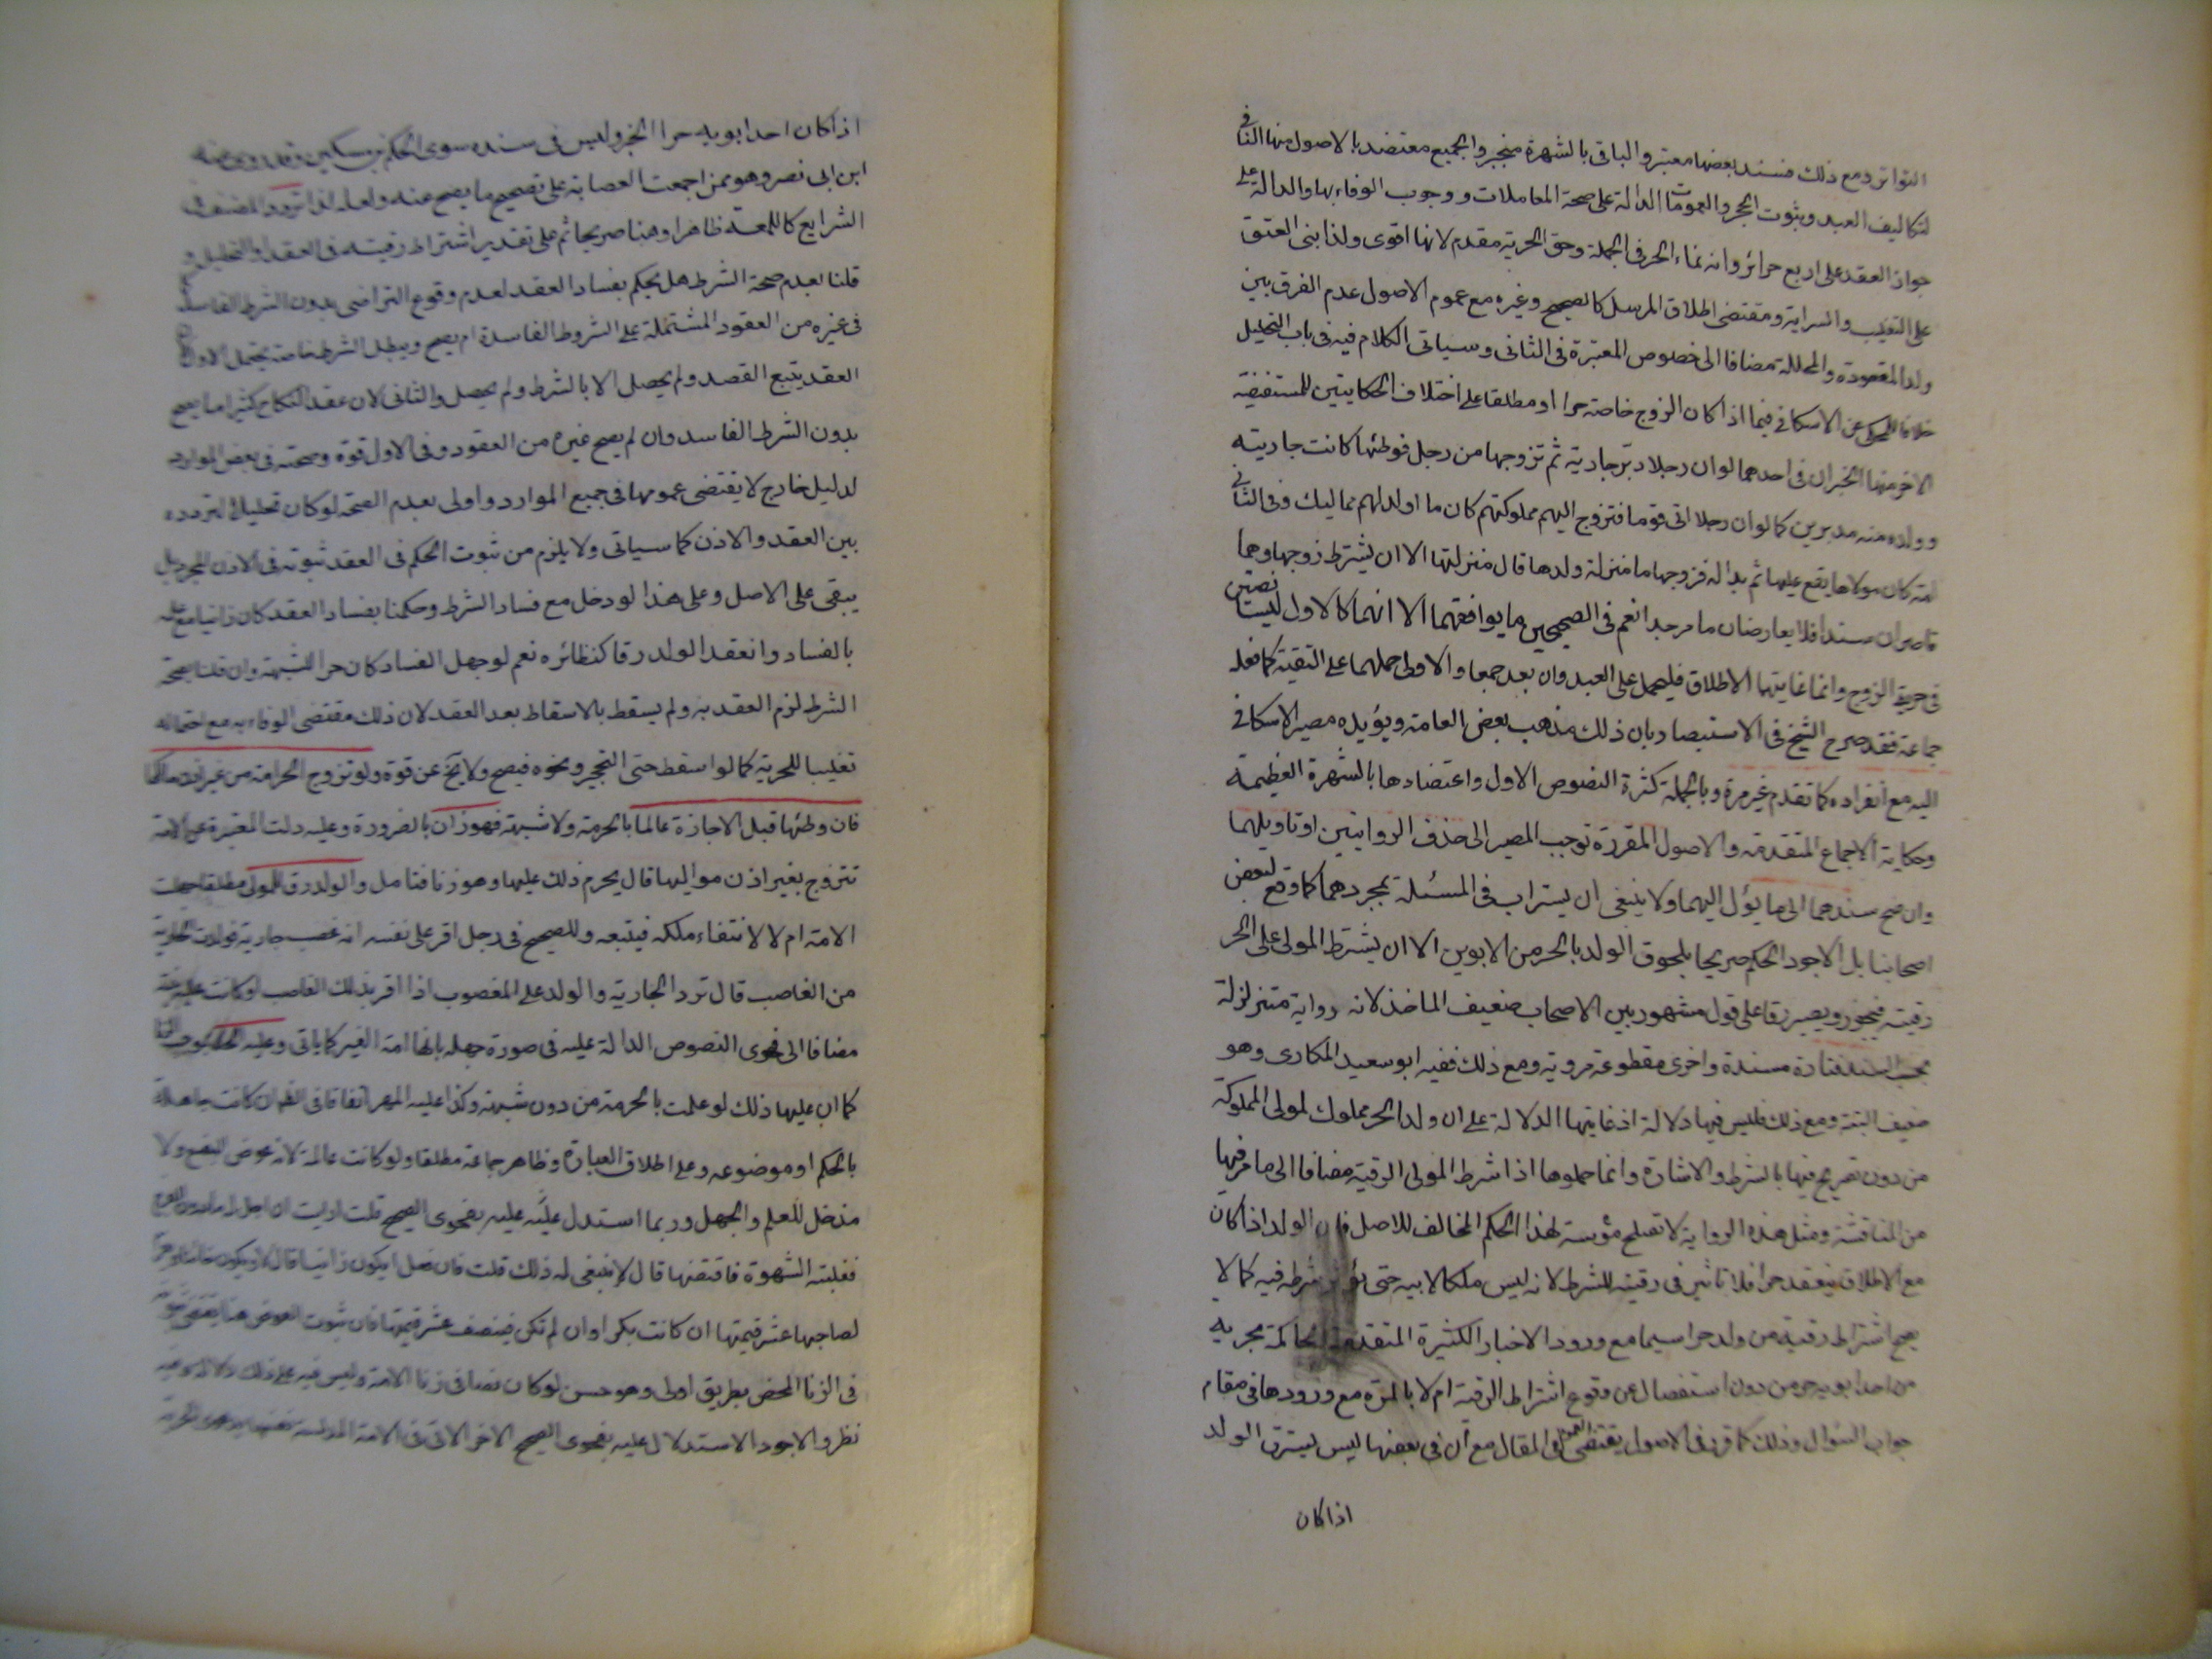 التواتر ومع ذلك فسند بعضها معتبر والباقي بالشهرة منجبر والجميع معتضد بالاصول منها النافي
لتكاليف العبد وثبوت الحجر والعمومات الدالة على صحة المعاملات ووجوب الوفاء بها والدالة على
جواز العقد على اربع حرائر وانه نماء الحر في الجملة وحق الحرية مقدم لانها اقوى ولذا بنى العتق
على التغليب والسراية ومقتضى اطلاق المرسل كالصحيح وغيره مع عموم الاصول عدم الفرق بين
ولد المعقودة والمحللة مضافا الى خصوص المعتبرة في الثاني وسياتي الكلام فيه في باب التحليل
خلافا للمحكى عن الاسكافي فيما اذا كان الزوج خاصة حرا او مطلقا على اختلاف الحكايتين للمستفيضة
الاخر منها الخبران في احدهما لو ان رجلا دبر جارية ثم تزوجها من رجل فوطئها كانت جاريته
وولده منه مدبرين كما لو ان رجلا اتى قوما فتزوج اليهم مملوكتهم كان ما اولد لهم مماليك وفي الثاني
امة كان مولاها يقع عليها ثم بدا له فزوجها ما منزلة ولدها قال منزلتها الا ان يشترط زوجها وهما
قاصران سندا فلا يعارضان ما مر جدا نعم في الصحيحين ما يوافقهما الا انهما كالاول ليستا نصين
في حرية الزوج وانما غايتها الاطلاق فليحمل على العبد وان بعد جمعا والاولى حملهما على التقية كما فعله
جماعة فقد صرح الشيخ في الاستبصار بان ذلك مذهب بعض العامة ويؤيده مصير الاسكافي
اليه مع انفراده كما تقدم غير مرة وبالجملة كثرة النصوص الاول واعتضادها بالشهرة العظيمة
وحكاية الاجماع المتقدمة والاصول المقررة توجب المصير الى حذف الروايتين او تاويلهما
وان صح سندهما الى ما يؤل اليهما ولا ينبغي ان يستراب في المسئلة بمجردهما كما وقع لبعض
اصحابنا بل الاجود الحكم صريحا بلحوق الولد بالحر من الابوين الا ان يشترط المولى على الحر
رقيته فيجوز ويصير رقا على قول مشهور بين الاصحاب ضعيف الماخذ لانه رواية متزلزلة
بحسب السند فتارة مسندة واخرى مقطوعة مروية ومع ذلك ففيه ابو سعيد المكاري وهو
ضعيف البتة ومع ذلك فليس فيها دلالة اذ غايتها الدلالة على ان ولد الحر مملوك لمولى المملوكة
من دون تصريح فيها بالشرط والاشارة وانما حملوها اذا شرط المولى الرقية مضافا الى ما مر فيها
من المناقشة ومثل هذه الرواية لا تصلح مؤسسة لهذا الحكم المخالف للاصل فان الولد اذا كان
مع الاطلاق ينعقد حرا فلا تاثير في رقيته للشرط لانه ليس ملكا لابيه حتى يؤثر شرطه فيه كما لا
يصح اشتراط رقية من ولد حرا سيما مع ورود الاخبار الكثيرة المتقدمة الحاكمة بحرية
من احد ابويه حر من دون استفصال عن وقوع اشتراط الرقية ام لا بالمرة مع ورودها في مقام
جواب السؤال وذلك كما قرر في الاصول يقتضي العموم في المقال مع ان في بعضها ليس يسترق الولد
اذا كان
اذا كان احد ابويه حرا الخبر وليس في سنده سوى الحكم بن مسكين وقد روى عنه
ابن ابي نصر وهو ممن اجمعت العصابة على تصحيح ما يصح عنه ولعله لذا تردد المصنف في
الشرايع كاللمعة ظاهرا وهنا صريحا ثم على تقدير اشتراط رقيته في العقد او التحليل و
قلنا بعدم صحة الشرط هل يحكم بفساد العقد لعدم وقوع التراضي بدون الشرط الفاسد كما
في غيره من العقود المشتملة على الشروط الفاسدة ام يصح ويبطل الشرط خاصة يحتمل الاول لان
العقد يتبع القصد ولم يحصل الا بالشرط ولم يحصل والثاني لان عقد النكاح كثيرا ما يصح
بدون الشرط الفاسد وان لم يصح غيره من العقود وفي الاول قوة وصحته في بعض الموارد
لدليل خارج لا يقتضى عمومها في جميع الموارد واولى بعدم الصحة لو كان تحليلا لتردده
بين العقد والاذن كما سياتي ولا يلزم من ثبوت الحكم في العقد ثبوته في الاذن المجرد بل
يبقى على الاصل وعلى هذا لو دخل مع فساد الشرط وحكمنا بفساد العقد كان زانيا مع علمه
بالفساد وانعقد الولد رقا كنظائره نعم لو جهل الفساد كان حرا للشبهة وان قلنا بصحة
الشرط لزم العقد به ولم يسقط بالاسقاط بعد العقد لان ذلك مقتضى الوفاء به مع احتماله
تغليبا للحرية كما لو اسقط حق التحجير ونحوه فيصح ولا يخ عن قوة ولو تزوج الحر امة من غير اذن مالكها
فان وطئها قبل الاجازة عالما بالحرمة ولا شبهة فهو زان بالضرورة وعليه دلت المعتبرة عن الامة
تتزوج بغير اذن مواليها قال يحرم ذلك عليها وهو زنا فتامل والولد رق للمولى مطلقا جهلت
الامة ام لا لانتفاء ملكه فيتبعه وللصحيح في رجل اقر على نفسه انه غصب جارية فولدت الجارية
من الغاصب قال ترد الجارية والولد على المغصوب اذا اقر بذلك الغاصب او كانت عليه بينة
مضافا الى فحوى النصوص الدالة عليه في صورة جهله بانها امة الغير كما ياتي وعليه الحد
كما ان عليها ذلك لو علمت بالحرمة من دون شبهة وكذا عليه المهر اتفاقا في ان كانت جاهلة
بالحكم او موضوعه وعلى اطلاق العبارة وظاهر جماعة مطلقا ولو كانت عالمة لانه عوض البضع ولا
مدخل للعلم والجهل وربما استدل عليه بفحوى الصحيح قلت ارايت ان احل له ما دون الفرج
فغلبته الشهوة فاقتضها قال لا ينبغي له ذلك قلت فان فعل ايكون زانيا قال لا ويكون خائنا ويغرم
لصاحبها عشر قيمتها ان كانت بكرا وان لم تكن فنصف عشر قيمتها فان ثبوت العوض هنا يقتضي ثبوته
في الزنا المحض بطريق اولى وهو حسن لو كان نصا في زنا الامة وليس فيه على ذلك دلالة وفيه
نظر والاجود الاستدلال عليه بفحوى الصحيح الاخر الاتي في الامة المدلسة